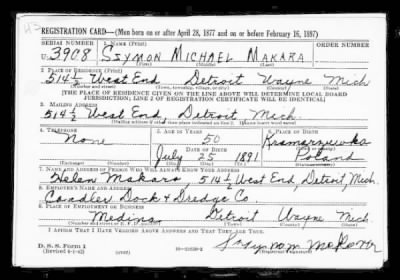 REGISTRATION CARD—(Men born on or after April 28, 1877 and on or before February 16, 1897)
SERIAL NUMBER 1. NAME (Print) ORDER NUMBER
U 3908 SZYMON MICHAEL MAKARA
2. PLACE OF RESIDENCE (Print)
514½ West End Detroit Wayne Mich
(Number and street) (Town, township, village, or city) (County) (State)
[THE PLACE OF RESIDENCE GIVEN ON THE LINE ABOVE WILL DETERMINE LOCAL BOARD
JURISDICTION; LINE 2 OF REGISTRATION CERTIFICATE WILL BE IDENTICAL]
3. MAILING ADDRESS
514½ West End, Detroit Mich.
[Mailing address if other than place indicated on line 2. If same insert word same]
4. TELEPHONE 5. AGE IN YEARS 6. PLACE OF BIRTH
None 50
DATE OF BIRTH (Town or county)
July 25 1891 Poland
(Exchange) (Number) (Mo.) (Day) (Yr.) (State or country)
7. NAME AND ADDRESS OF PERSON WHO WILL ALWAYS KNOW YOUR ADDRESS
Helen Makara 514½ West End, Detroit, Mich.
8. EMPLOYER'S NAME AND ADDRESS
Dock & Dredge Co.
9. PLACE OF EMPLOYMENT OR BUSINESS
Medina Detroit Wayne Mich
(Number and street or R. F. D. number) (Town) (County) (State)
I AFFIRM THAT I HAVE VERIFIED ABOVE ANSWERS AND THAT THEY ARE TRUE.
D. S. S. Form 1 Szymon Makara
(Revised 4-1-42) (over) (Registrant's signature)